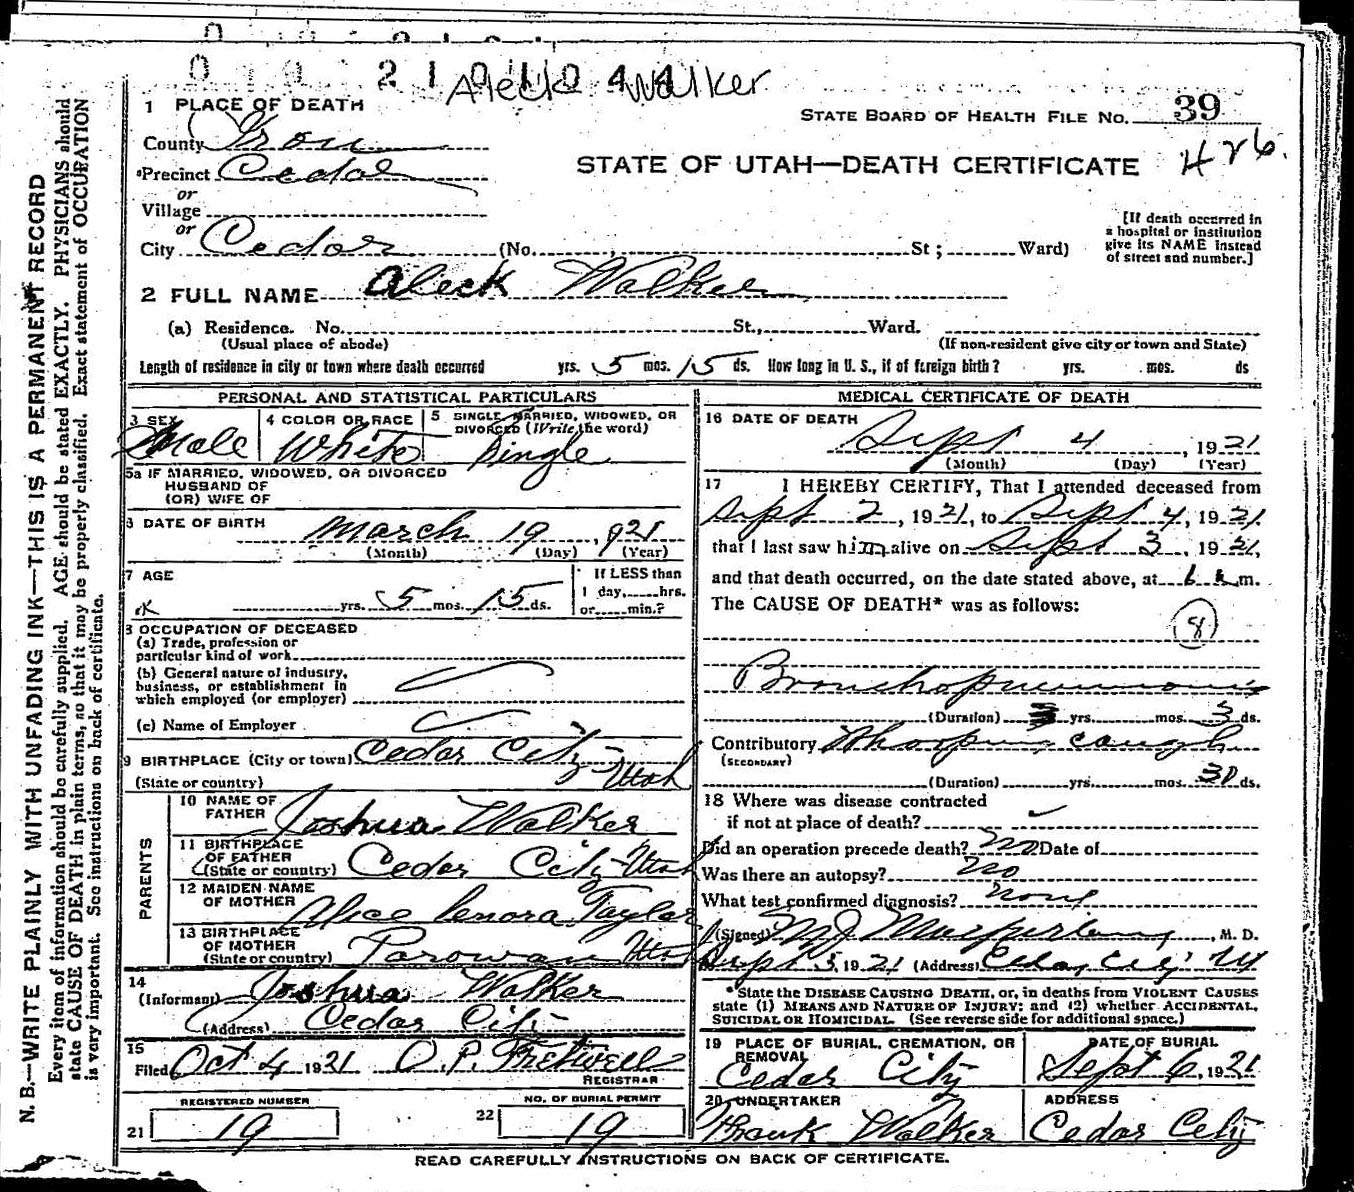 2 1 0 1 0 4 4
Aleck Walker
1 PLACE OF DEATH
County Iron
STATE BOARD OF HEALTH FILE NO. 39
426.
Precinct Cedar
STATE OF UTAH—DEATH CERTIFICATE
or
Village
or
City Cedar (No. St; Ward)
[If death occurred in
a hospital or institution
give its NAME instead
of street and number.]
2 FULL NAME Aleck Walker
(a) Residence. No. St., Ward.
(Usual place of abode) (If non-resident give city or town and State)
Length of residence in city or town where death occurred yrs. 5 mos. 15 ds. How long in U. S., if of foreign birth? yrs. mos. ds
PERSONAL AND STATISTICAL PARTICULARS
3 SEX
Male
4 COLOR OR RACE
White
5 SINGLE, MARRIED, WIDOWED, OR
DIVORCED (Write the word)
Single
5a IF MARRIED, WIDOWED, OR DIVORCED
HUSBAND OF
(OR) WIFE OF
6 DATE OF BIRTH
March 19, 921
(Month) (Day) (Year)
7 AGE
yrs. 5 mos. 15 ds.
If LESS than
1 day, hrs.
or min.?
8 OCCUPATION OF DECEASED
(a) Trade, profession or
particular kind of work
(b) General nature of industry,
business, or establishment in
which employed (or employer)
(c) Name of Employer
9 BIRTHPLACE (City or town) Cedar City
(State or country) Utah
PARENTS
10 NAME OF
FATHER Joshua Walker
11 BIRTHPLACE
OF FATHER
(State or country) Cedar City Utah
12 MAIDEN NAME
OF MOTHER Alice Lenora Taylor
13 BIRTHPLACE
OF MOTHER
(State or country) Parowan Utah
14
(Informant) Joshua Walker
(Address) Cedar City
15
Filed Oct 4 1921 O. P. Fretwell
REGISTRAR
REGISTERED NUMBER
21 19
NO. OF BURIAL PERMIT
22 19
MEDICAL CERTIFICATE OF DEATH
16 DATE OF DEATH
Sept 4, 1921
(Month) (Day) (Year)
17 I HEREBY CERTIFY, That I attended deceased from
Sept 2, 1921, to Sept 4, 1921
that I last saw him alive on Sept 3, 1921,
and that death occurred, on the date stated above, at m.
The CAUSE OF DEATH* was as follows:
8
Bronchopneumonia
(Duration) yrs. mos. 3 ds.
Contributory Whooping cough
(SECONDARY)
(Duration) yrs. mos. 30 ds.
18 Where was disease contracted
if not at place of death?
Did an operation precede death? No Date of
Was there an autopsy? No
What test confirmed diagnosis? None
(Signed) M J Macfarlane, M. D.
Sept 5, 1921 (Address) Cedar City Ut
*State the DISEASE CAUSING DEATH, or, in deaths from VIOLENT CAUSES
state (1) MEANS AND NATURE OF INJURY; and (2) whether ACCIDENTAL,
SUICIDAL OR HOMICIDAL. (See reverse side for additional space.)
19 PLACE OF BURIAL, CREMATION, OR
REMOVAL
Cedar City
DATE OF BURIAL
Sept 6, 1921
20 UNDERTAKER
Frank Walker
ADDRESS
Cedar City
READ CAREFULLY INSTRUCTIONS ON BACK OF CERTIFICATE.
N. B.—WRITE PLAINLY WITH UNFADING INK—THIS IS A PERMANENT RECORD
Every item of information should be carefully supplied. AGE should be stated EXACTLY. PHYSICIANS should
state CAUSE OF DEATH in plain terms, so that it may be properly classified. Exact statement of OCCUPATION
is very important. See instructions on back of certificate.